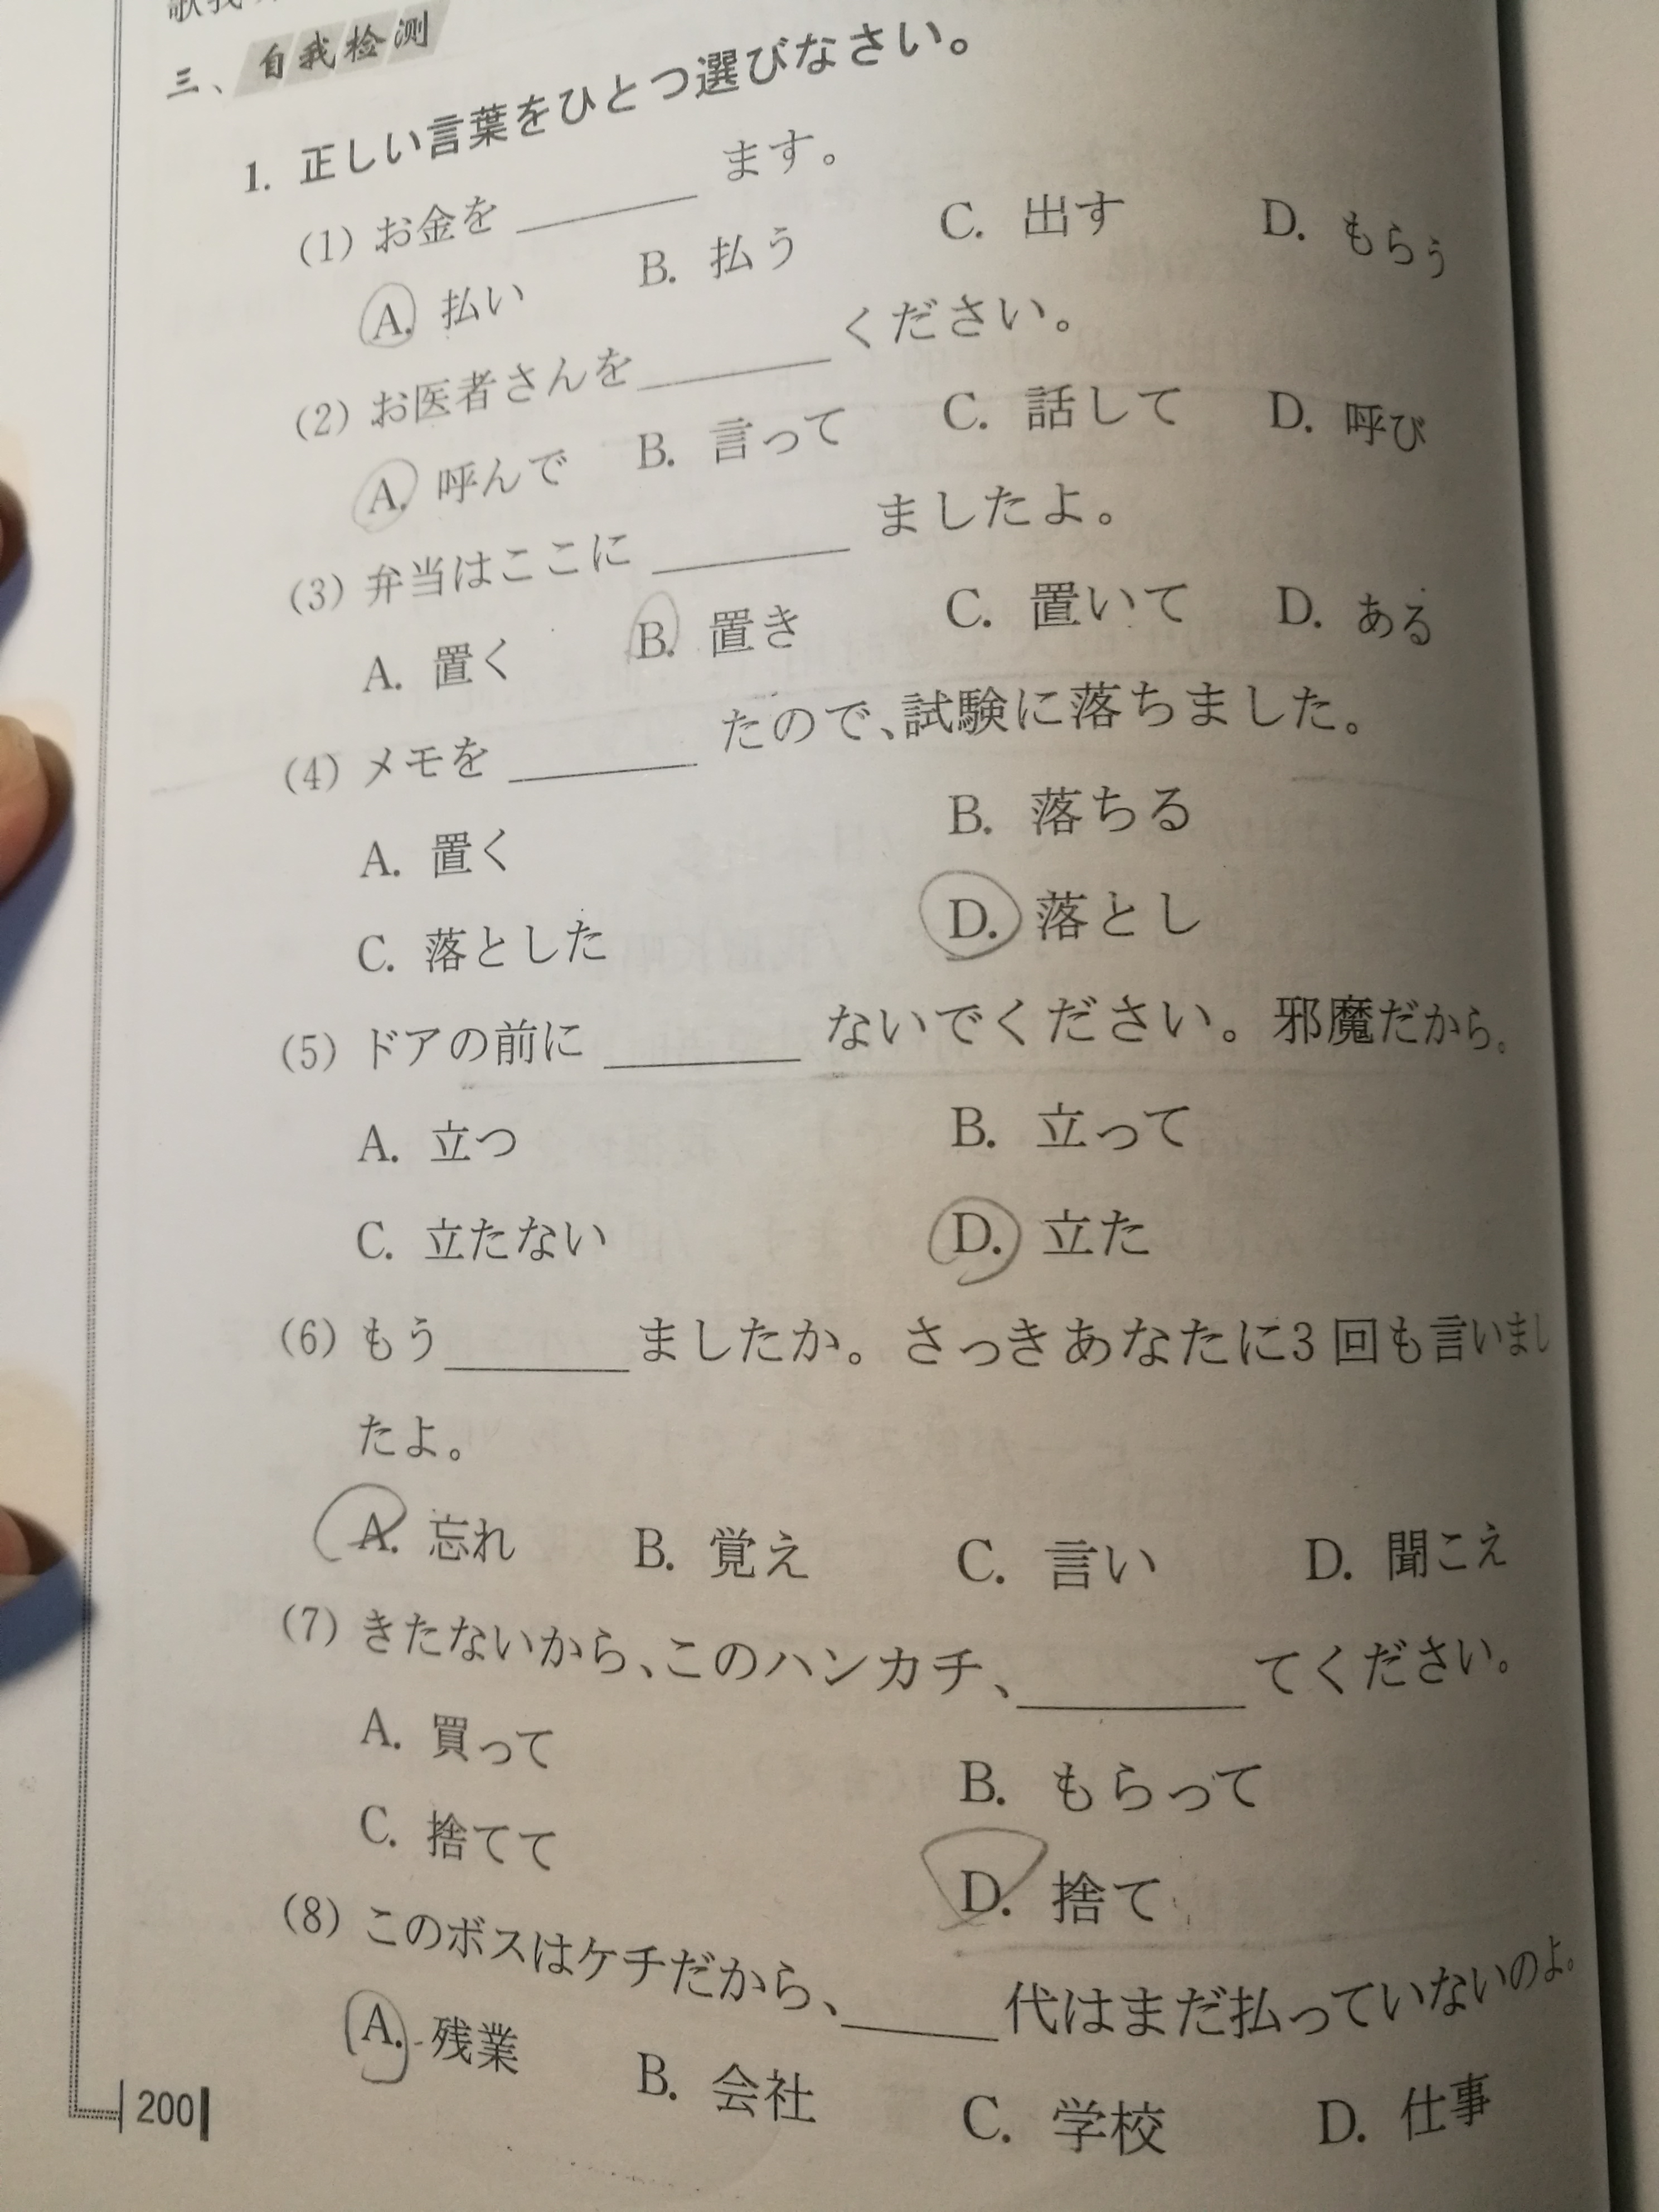 三、自我检测
1. 正しい言葉をひとつ選びなさい。
(1) お金を______ます。
A. 払い B. 払う C. 出す D. もらう
(2) お医者さんを______ください。
A. 呼んで B. 言って C. 話して D. 呼び
(3) 弁当はここに______ましたよ。
A. 置く B. 置き C. 置いて D. ある
(4) メモを______たので、試験に落ちました。
A. 置く B. 落ちる
C. 落とした D. 落とし
(5) ドアの前に______ないでください。邪魔だから。
A. 立つ B. 立って
C. 立たない D. 立た
(6) もう______ましたか。さっきあなたに3回も言いまし
たよ。
A. 忘れ B. 覚え C. 言い D. 聞こえ
(7) きたないから、このハンカチ、______てください。
A. 買って B. もらって
C. 捨てて D. 捨て
(8) このボスはケチだから、______代はまだ払っていないのよ。
A. 残業 B. 会社 C. 学校 D. 仕事
200